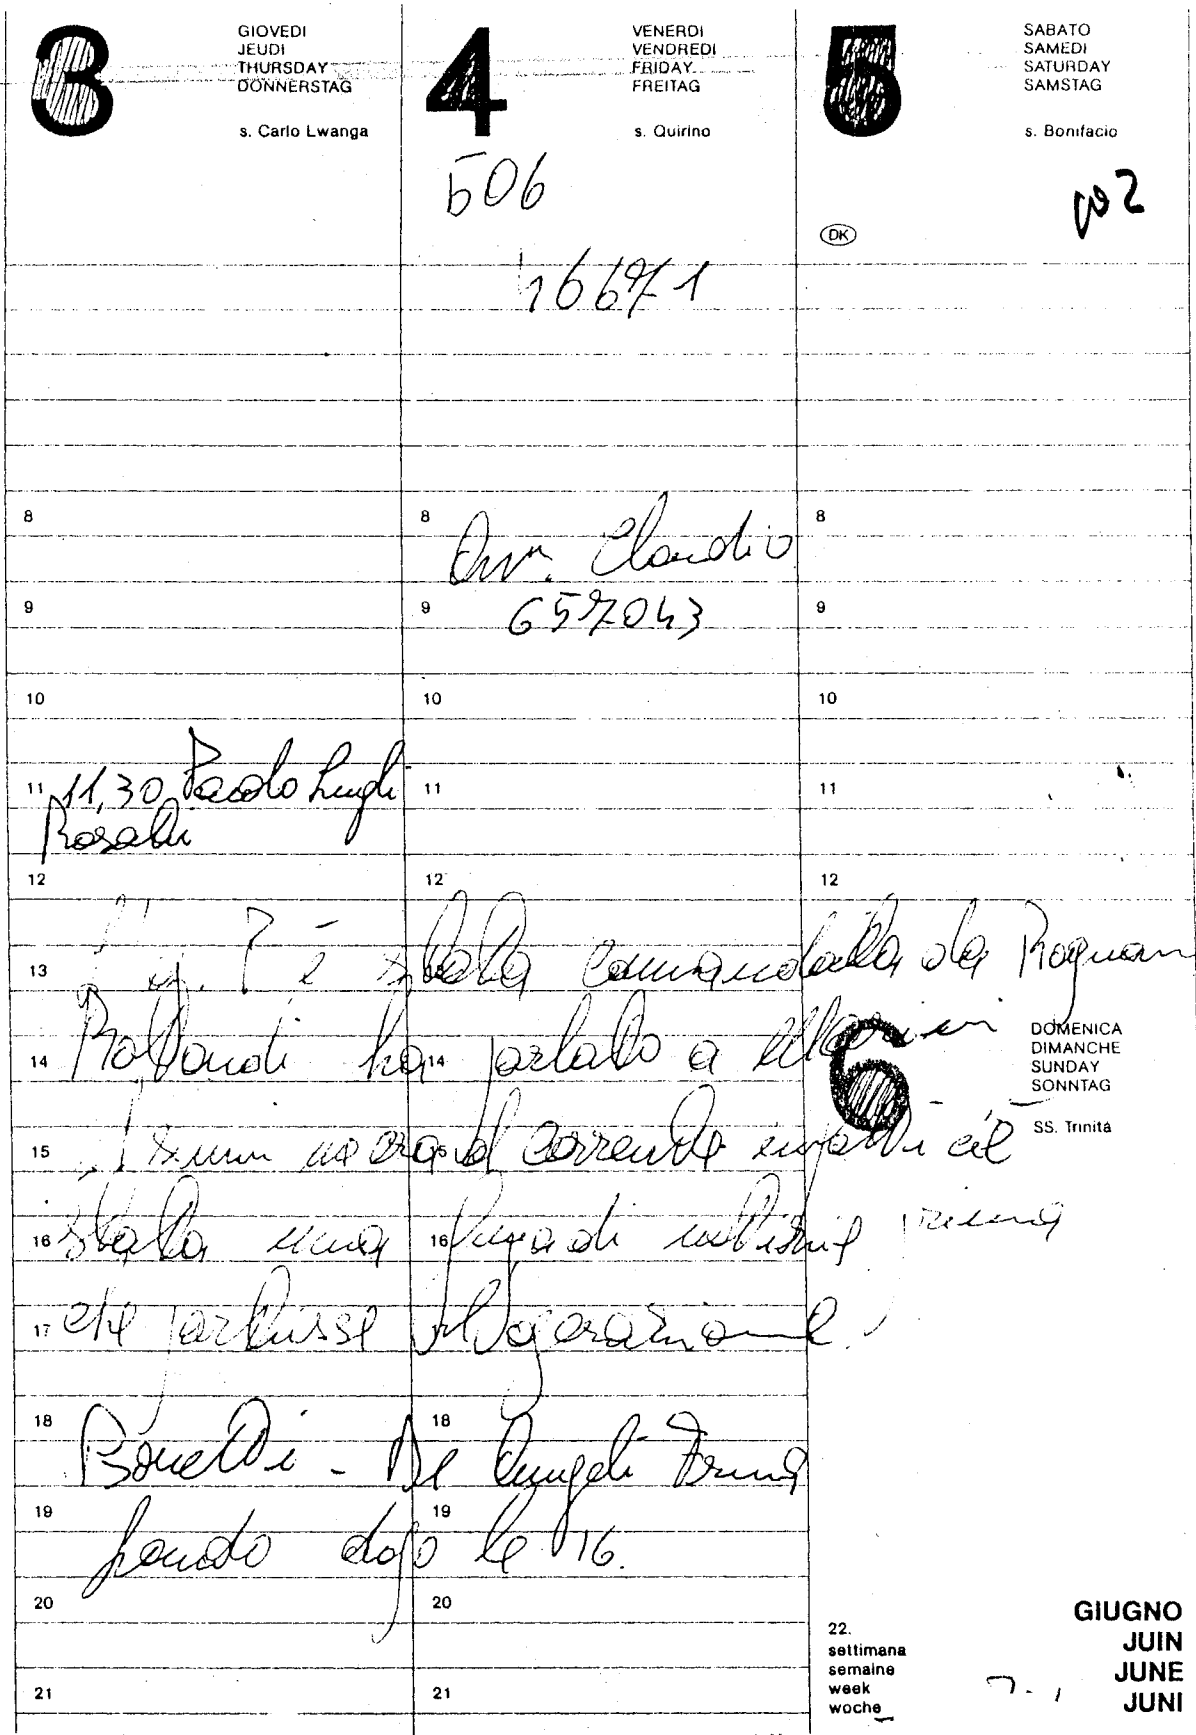 3
GIOVEDI
JEUDI
THURSDAY
DONNERSTAG
s. Carlo Lwanga
8
9
10
11 11,30 Paolo Lugli
12
13
14
15
16
17
18
19
20
21
4
VENERDI
VENDREDI
FRIDAY
FREITAG
s. Quirino
506
46671
8
Avv. Claudio
9 657043
10
11
12
14
16
18
19
20
21
5
SABATO
SAMEDI
SATURDAY
SAMSTAG
s. Bonifacio
DK
8
9
10
11
12
è stata comandata da Rognoni
Rotondi ha parlato a
era al corrente infatti c'è
stata una fuga di notizie prima
che partisse l'operazione.
Bonetti - De Angeli
dopo le 16.
6
DOMENICA
DIMANCHE
SUNDAY
SONNTAG
SS. Trinità
22.
settimana
semaine
week
woche
GIUGNO
JUIN
JUNE
JUNI